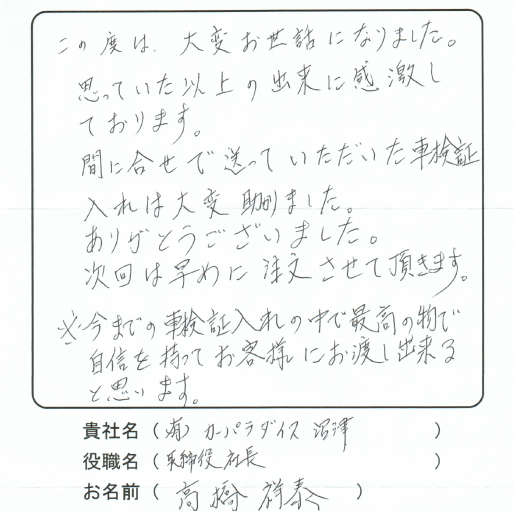 この度は、大変お世話になりました。
思っていた以上の出来に感激し
ております。
間に合せで送っていただいた車検証
入れは大変助かりました。
ありがとうございました。
次回は早めに注文させて頂きます。
※今までの車検証入れの中で最高の物で
自信を持ってお客様にお渡し出来る
と思います。
貴社名（(有)カーパラダイス沼津）
役職名（取締役社長）
お名前（高橋祥泰）